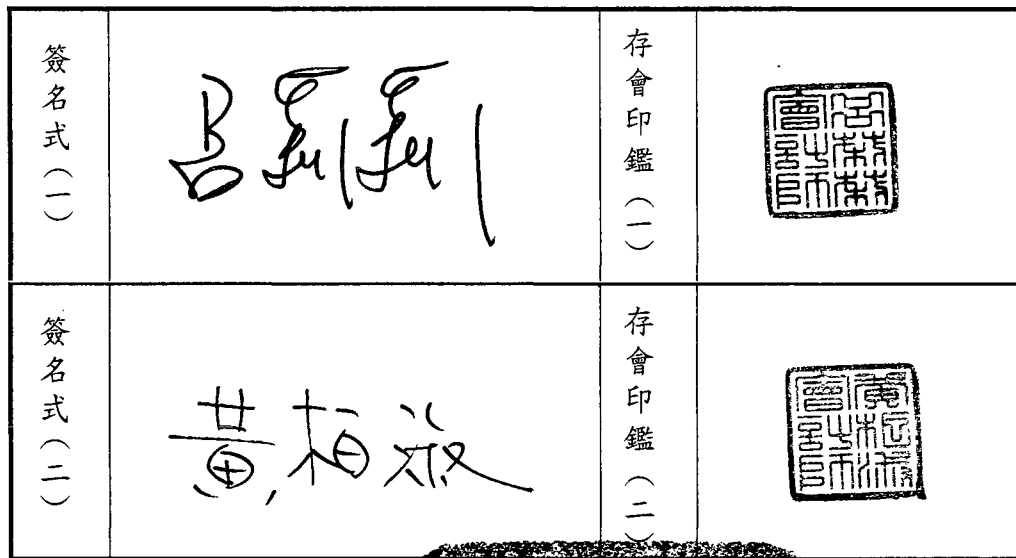 簽名式（一）
呂
存會印鑑（一）
會計師
簽名式（二）
黃柏
存會印鑑（二）
黃柏
會計師